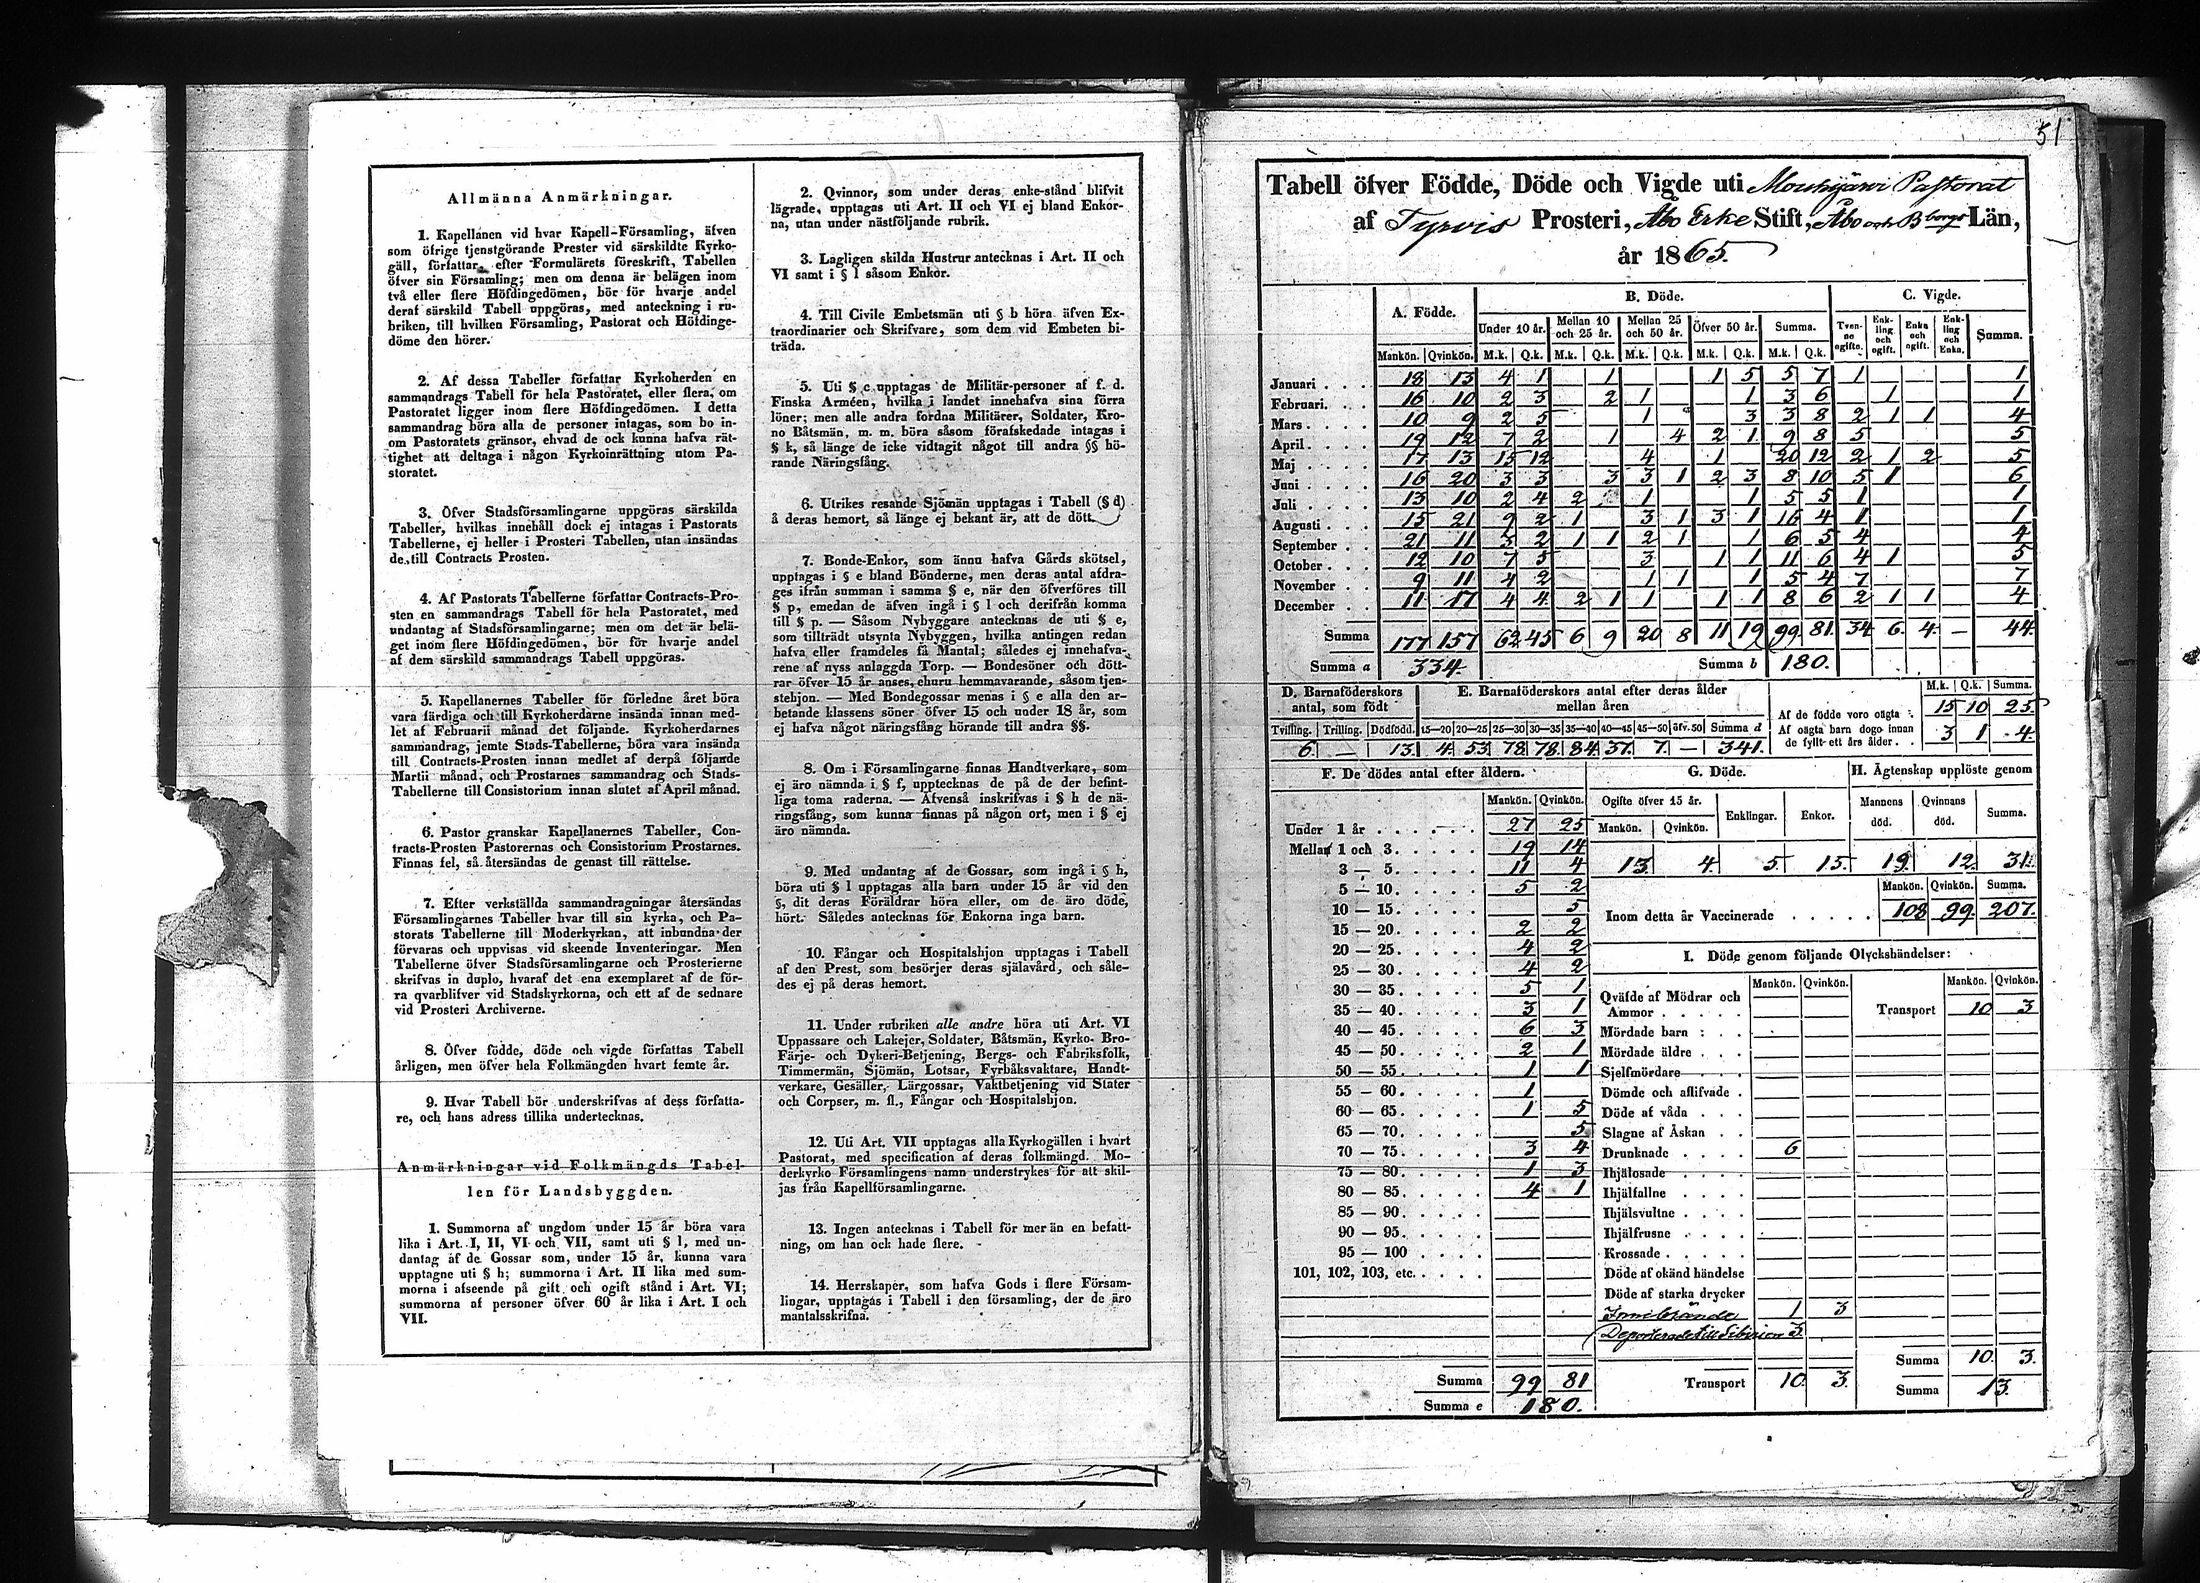 Allmänna Anmärkningar.
1. Kapellanen vid hvar Kapell-Församling, äfven
som öfrige tjenstgörande Prester vid särskildte Kyrko-
gäll, författar, efter Formulärets föreskrift, Tabellen
öfver sin Församling; men om denna är belägen inom
två eller flere Höfdingedömen, bör för hvarje andel
deraf särskild Tabell uppgöras, med anteckning i ru-
briken, till hvilken Församling, Pastorat och Höfdinge-
döme den hörer.
2. Af dessa Tabeller författar Kyrkoherden en
sammandrags Tabell för hela Pastoratet, eller flera, om
Pastoratet ligger inom flere Höfdingedömen. I detta
sammandrag böra alla de personer intagas, som bo in-
om Pastoratets gränsor, ehvad de ock kunna hafva rät-
tighet att deltaga i någon Kyrkoinrättning utom Pa-
storatet.
3. Öfver Stadsförsamlingarne uppgöras särskilda
Tabeller, hvilkas innehåll dock ej intages i Pastorats
Tabellerne, ej heller i Prosteri Tabellen, utan insändas
de till Contracts Prosten.
4. Af Pastorats Tabellerne författar Contracts-Pro-
sten en sammandrags Tabell för hela Pastoratet, med
undantag af Stadsförsamlingarne; men om det är belä-
get inom flere Höfdingedömen, bör för hvarje andel
af dem särskild sammandrags Tabell uppgöras.
5. Kapellanernes Tabeller för förledne året böra
vara färdiga och till Kyrkoherdarne insända innan med-
let af Februarii månad det följande. Kyrkoherdarnes
sammandrag, jemte Stads-Tabellerne, böra vara insända
till Contracts-Prosten innan medlet af derpå följande
Martii månad, och Prostarnes sammandrag och Stads-
Tabellerne till Consistorium innan slutet af April månad.
6. Pastor granskar Kapellanernes Tabeller, Con-
tracts-Prosten Pastorernas och Consistorium Prostarnes.
Finnas fel, så återsändas de genast till rättelse.
7. Efter verkställda sammandragningar återsändas
Församlingarnes Tabeller hvar till sin kyrka, och Pa-
storats Tabellerne till Moderkyrkan, att inbundna der
förvaras och uppvisas vid skeende Inventeringar. Men
Tabellerne öfver Stadsförsamlingarne och Prosterierne
skrifvas in duplo, hvaraf det ena exemplaret af de för-
ra qvarblifver vid Stadskyrkorna, och ett af de sednare
vid Prosteri Archiverne.
8. Öfver födde, döde och vigde författas Tabell
årligen, men öfver hela Folkmängden hvart femte år.
9. Hvar Tabell bör underskrifvas af dess författa-
re, och hans adress tillika undertecknas.
Anmärkningar vid Folkmängds Tabel-
len för Landsbyggden.
1. Summorna af ungdom under 15 år böra vara
lika i Art. I, II, VI och VII, samt uti § l, med un-
dantag af de Gossar som, under 15 år, kunna vara
upptagne uti § h; summorna i Art. II lika med sum-
morna i afseende på gift och ogift stånd i Art. VI;
summorna af personer öfver 60 år lika i Art. I och
VII.
2. Qvinnor, som under deras enke-stånd blifvit
lägrade, upptagas uti Art. II och VI ej bland Enkor-
na, utan under nästföljande rubrik.
3. Lagligen skilda Hustrur antecknas i Art. II och
VI samt i § l såsom Enkor.
4. Till Civile Embetsmän uti § b höra äfven Ex-
traordinarier och Skrifvare, som dem vid Embeten bi-
träda.
5. Uti § c upptagas de Militär-personer af f. d.
Finska Arméen, hvilka i landet innehafva sina förra
löner; men alla andra fordna Militärer, Soldater, Kro-
no Båtsmän, m. m. böra såsom förafskedade intagas i
§ k, så länge de icke vidtagit något till andra §§ hö-
rande Näringsfång.
6. Utrikes resande Sjömän upptagas i Tabell (§ d)
å deras hemort, så länge ej bekant är, att de dött.
7. Bonde-Enkor, som ännu hafva Gårds skötsel,
upptagas i § e bland Bönderne, men deras antal afdra-
ges ifrån summan i samma § e, när den öfverföres till
§ p, emedan de äfven ingå i § l och derifrån komma
till § p. — Såsom Nybyggare antecknas de uti § e,
som tillträdt utsynta Nybyggen, hvilka antingen redan
hafva eller framdeles få Mantal; således ej innehafva-
rene af nyss anlaggda Torp. — Bondesöner och dött-
rar öfver 15 år anses, ehuru hemmavarande, såsom tjen-
stehjon. — Med Bondegossar menas i § e alla den ar-
betande klassens söner öfver 15 och under 18 år, som
ej hafva något näringsfång hörande till andra §§.
8. Om i Församlingarne finnas Handtverkare, som
ej äro nämnda i § f, upptecknas de på de der befint-
liga toma raderna. — Äfvenså inskrifvas i § h de nä-
ringsfång, som kunna finnas på någon ort, men i § ej
äro nämnda.
9. Med undantag af de Gossar, som ingå i § h,
böra uti § l upptagas alla barn under 15 år vid den
§, dit deras Föräldrar höra eller, om de äro döde,
hört. Således antecknas för Enkorna inga barn.
10. Fångar och Hospitalshjon upptagas i Tabell
af den Prest, som besörjer deras själavård, och såle-
des ej på deras hemort.
11. Under rubriken alle andre höra uti Art. VI
Uppassare och Lakejer, Soldater, Båtsmän, Kyrko- Bro-
Färje- och Dykeri-Betjening, Bergs- och Fabriksfolk,
Timmermän, Sjömän, Lotsar, Fyrbåksvaktare, Handt-
verkare, Gesäller, Lärgossar, Vaktbetjening vid Stater
och Corpser, m. fl., Fångar och Hospitalshjon.
12. Uti Art. VII upptagas alla Kyrkogällen i hvart
Pastorat, med specification af deras folkmängd. Mo-
derkyrko Församlingens namn understrykes för att skil-
jas från Kapellförsamlingarne.
13. Ingen antecknas i Tabell för mer än en befatt-
ning, om han ock hade flere.
14. Herrskaper, som hafva Gods i flere Försam-
lingar, upptagas i Tabell i den församling, der de äro
mantalsskrifna.
51
Tabell öfver Födde, Döde och Vigde uti Mouhijärvi Pastorat
af Tyrvis Prosteri, Åbo Erke Stift, Åbo och Bborgs Län,
år 1865.
A. Födde. B. Döde. C. Vigde.
Under 10 år. Mellan 10 och 25 år. Mellan 25 och 50 år. Öfver 50 år. Summa. Tven-ne ogifte. Enk-ling och ogift. Enka och ogift. Enk-ling och Enka. Summa.
Mankön. Qvinkön. M.k. Q.k. M.k. Q.k. M.k. Q.k. M.k. Q.k. M.k. Q.k.
Januari 18 13 4 1 1 1 5 5 7 1 1
Februari 16 10 2 3 2 1 1 3 6 1 1
Mars 10 9 2 5 1 3 3 8 2 1 1 4
April 19 12 7 2 1 4 2 1 9 8 5 5
Maj 17 13 15 12 4 1 20 12 2 1 2 5
Juni 16 20 3 3 3 3 1 2 3 8 10 5 1 6
Juli 13 10 2 4 2 1 1 5 5 1 1
Augusti 15 21 9 2 1 3 1 3 1 16 4 1 1
September 21 11 3 2 1 1 2 1 1 6 5 4 4
October 12 10 7 5 3 1 1 11 6 4 1 5
November 9 11 4 2 1 1 1 5 4 7 7
December 11 17 4 4 2 1 1 1 1 8 6 2 1 1 4
Summa 177 157 62 45 6 9 20 8 11 19 99 81. 34 6. 4. — 44.
Summa a 334. Summa b 180.
D. Barnaföderskors antal, som födt
Tvilling. Trilling. Dödfödd.
6. — 13.
E. Barnaföderskors antal efter deras ålder mellan åren
15—20 20—25 25—30 30—35 35—40 40—45 45—50 öfv. 50 Summa d
4. 53. 78. 78. 84. 37. 7. — 341.
M.k. Q.k. Summa.
Af de födde voro oägta 15 10 25.
Af oägta barn dogo innan
de fyllt ett års ålder 3 1 4.
F. De dödes antal efter åldern.
Mankön. Qvinkön.
Under 1 år 27 25
Mellan 1 och 3 19 14
3 — 5 11 4
5 — 10 5 2
10 — 15 5
15 — 20 2 2
20 — 25 4 2
25 — 30 4 2
30 — 35 5 1
35 — 40 3 1
40 — 45 6 3
45 — 50 2 1
50 — 55 1 1
55 — 60 1
60 — 65 1 5
65 — 70 5
70 — 75 3 4
75 — 80 1 3
80 — 85 4 1
85 — 90
90 — 95
95 — 100
101, 102, 103, etc.
Summa 99 81
Summa e 180.
G. Döde.
Ogifte öfver 15 år. Enklingar. Enkor.
Mankön. Qvinkön.
13. 4. 5. 15.
H. Ägtenskap upplöste genom
Mannens död. Qvinnans död. Summa.
19. 12. 31.
Mankön. Qvinkön. Summa.
Inom detta år Vaccinerade 108 99. 207.
I. Döde genom följande Olyckshändelser:
Mankön. Qvinkön. Mankön. Qvinkön.
Qväfde af Mödrar och
Ammor Transport 10 3
Mördade barn
Mördade äldre
Sjelfmördare
Dömde och aflifvade
Döde af våda
Slagne af Åskan
Drunknade 6
Ihjälosade
Ihjälfallne
Ihjälsvultne
Ihjälfrusne
Krossade
Döde af okänd händelse
Döde af starka drycker
Innebrände 1 3
Deporterade till Sibirien 3.
Summa 10. 3.
Transport 10. 3.
Summa 13.